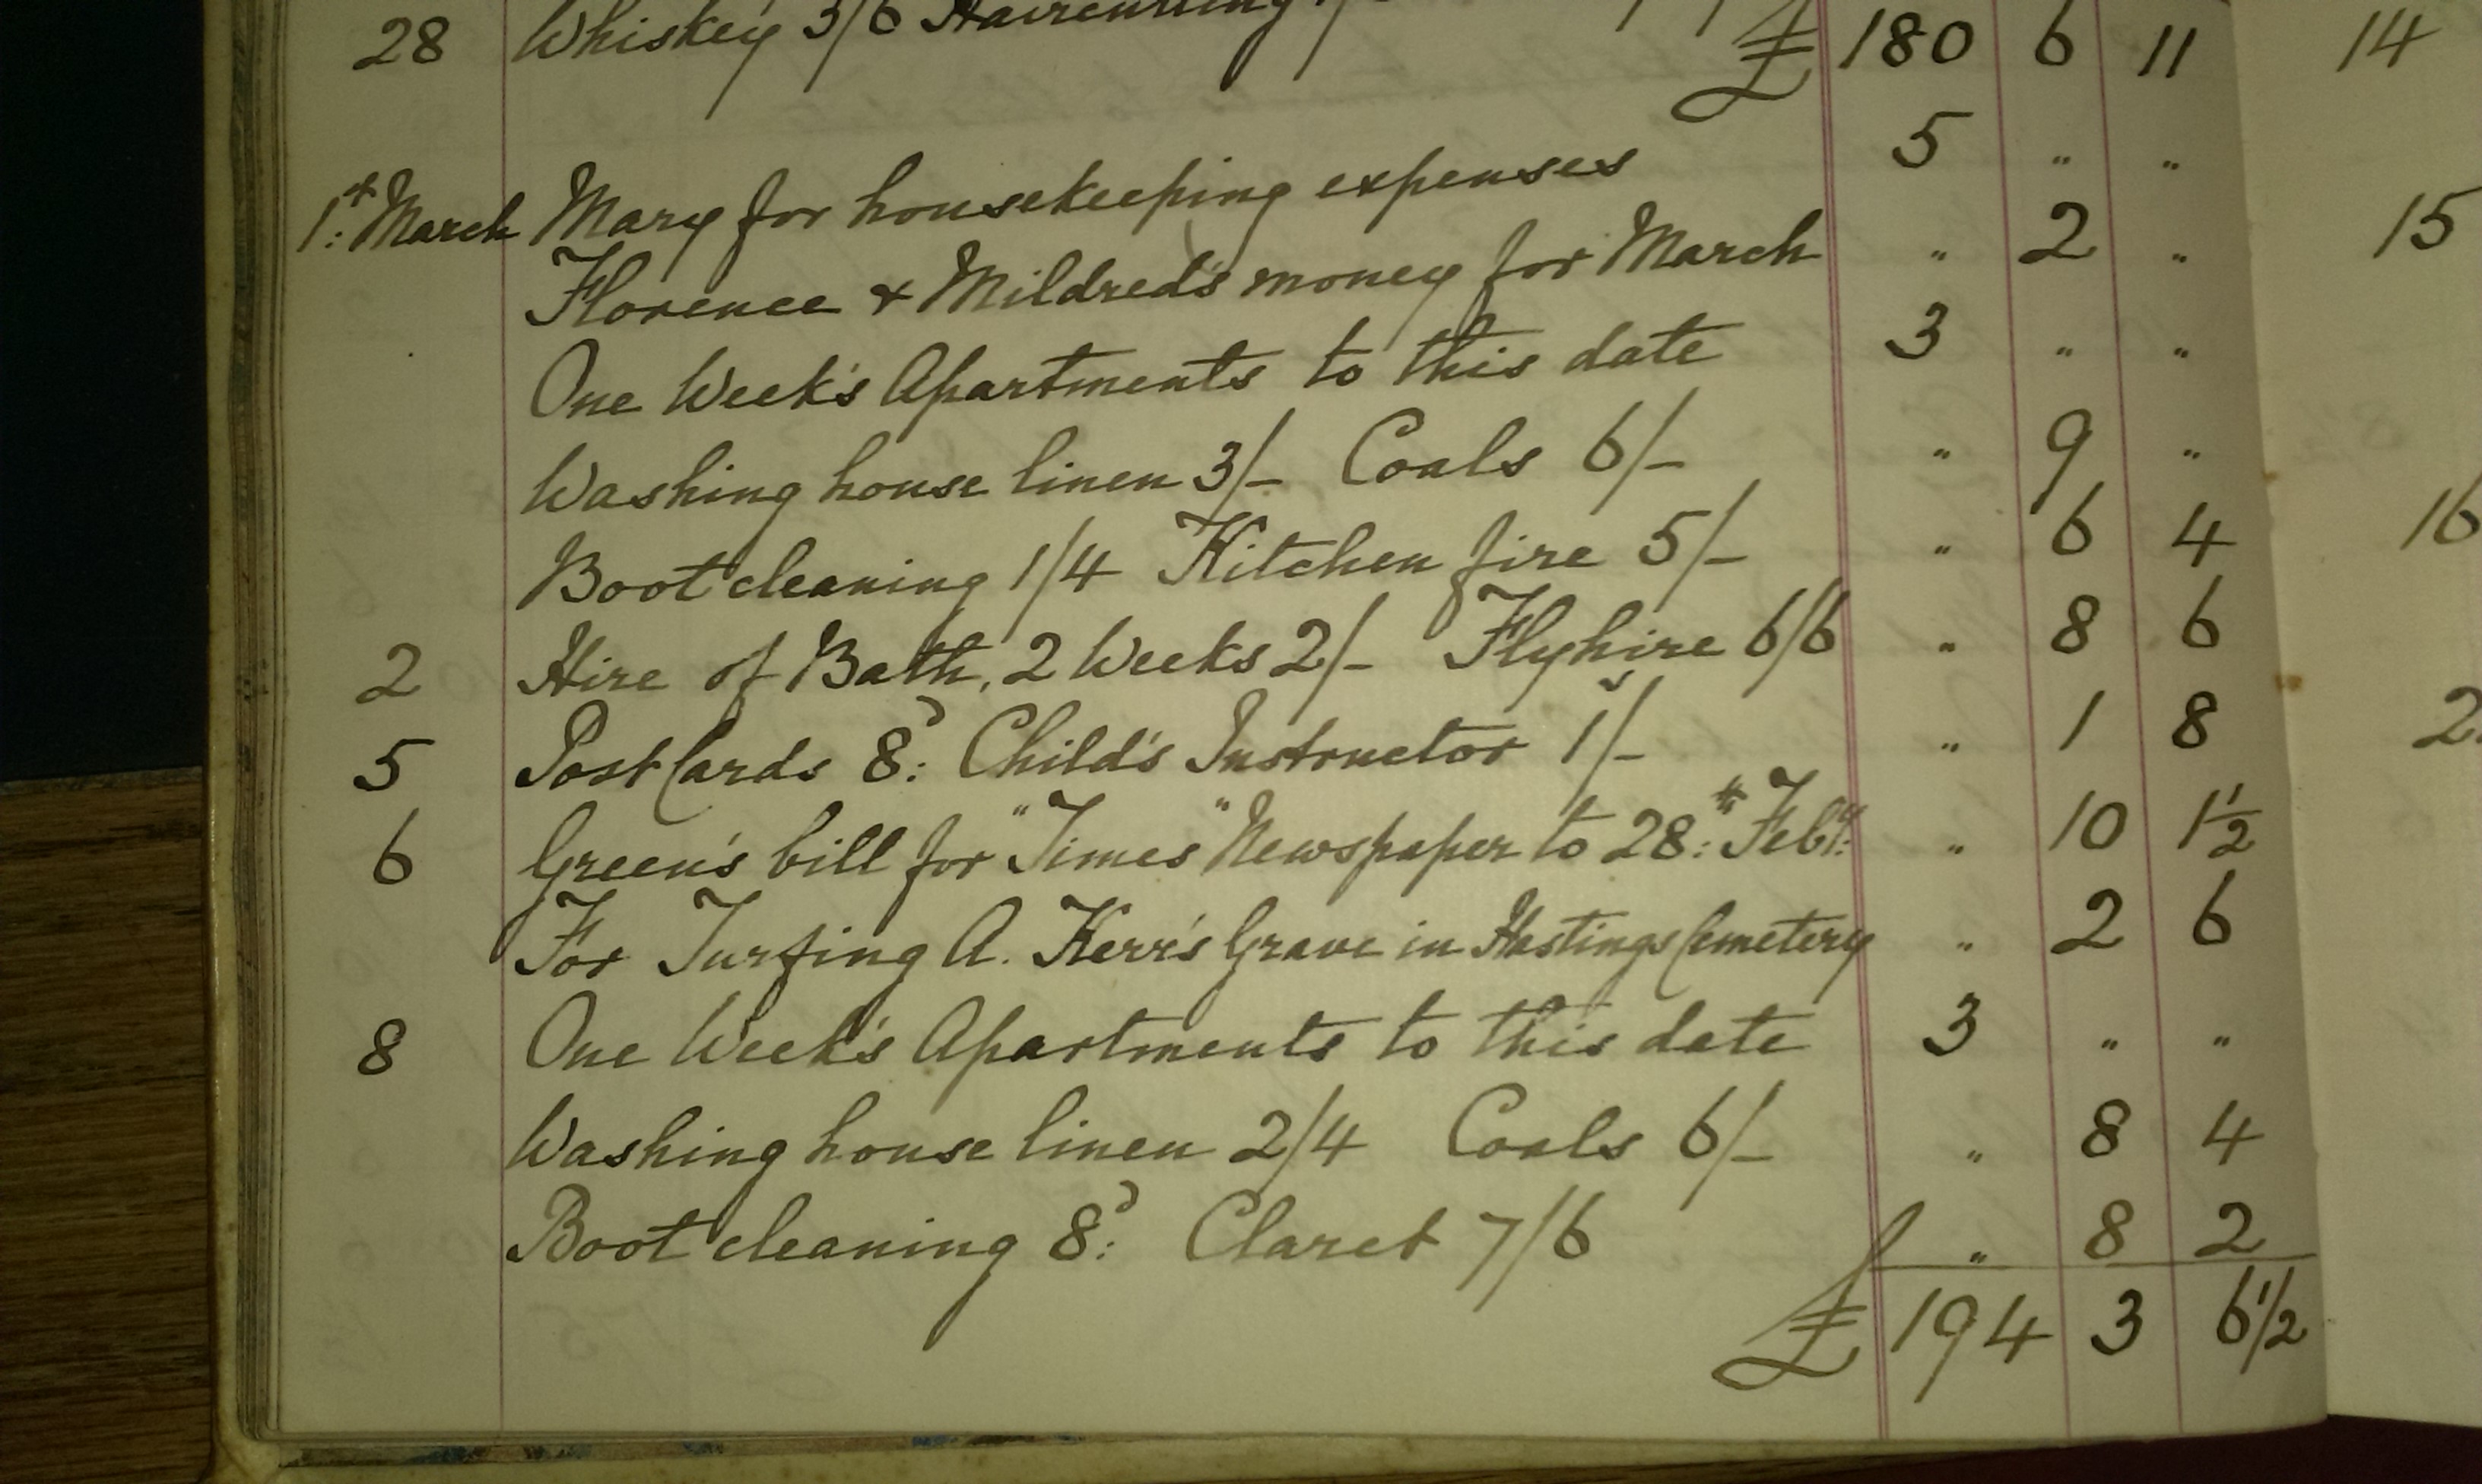 28 Whiskey 3/6 Haircutting £ 180 6 11
1st: March Mary for housekeeping expenses 5 " "
Florence & Mildred's money for March " 2 "
One Week's Apartments to this date 3 " "
Washing house linen 3/- Coals 6/- " 9 "
Boot cleaning 1/4 Kitchen fire 5/- " 6 4
2 Hire of Bath, 2 Weeks 2/- Flyhire 6/6 " 8 6
5 Post Cards 8d: Child's Instructor 1/- " 1 8
6 Green's bill for "Times" Newspaper to 28th: Feby: " 10 1½
For Turfing A. Kerr's Grave in Hastings Cemetery " 2 6
8 One Week's Apartments to this date 3 " "
Washing house linen 2/4 Coals 6/- " 8 4
Boot cleaning 8d: Claret 7/6 " 8 2
£ 194 3 6½
14
15
16